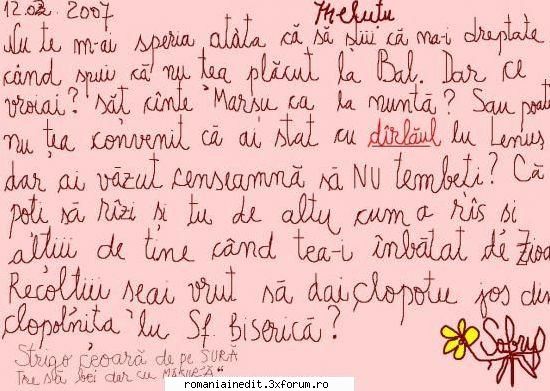 12.02.2007 Mefutu
Nu te m-ai speria atâta că să știi că na-i dreptate
când spui că nu tea plăcut la Bal. Dar ce
vroiai? săt cînte Marsu ca la nuntă? Sau poate
nu țea convenit că ai stat cu dîrlăul lu Lenuș
dar ai văzut censeamnă să NU tembeti? Că
poti să rîzi și tu de alty cum a rîs și
altiii de tine când tea-i înbătat de Zioa
Recoltiii seai vrut să dai clopotu jos din
clopolnita lu Sf. Biserică?
Strigo ceoară de pe ȘURA
Tre să bei dar cu MĂSURĂ"
romaniainedit.3xforum.ro